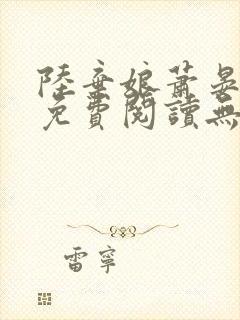 陸棄娘蕭晏
免費閱讀無
雷寧